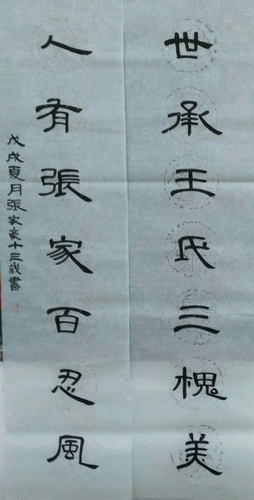 世承王氏三槐美
人有張家百忍風
戊戌夏月張家豪十三歲書